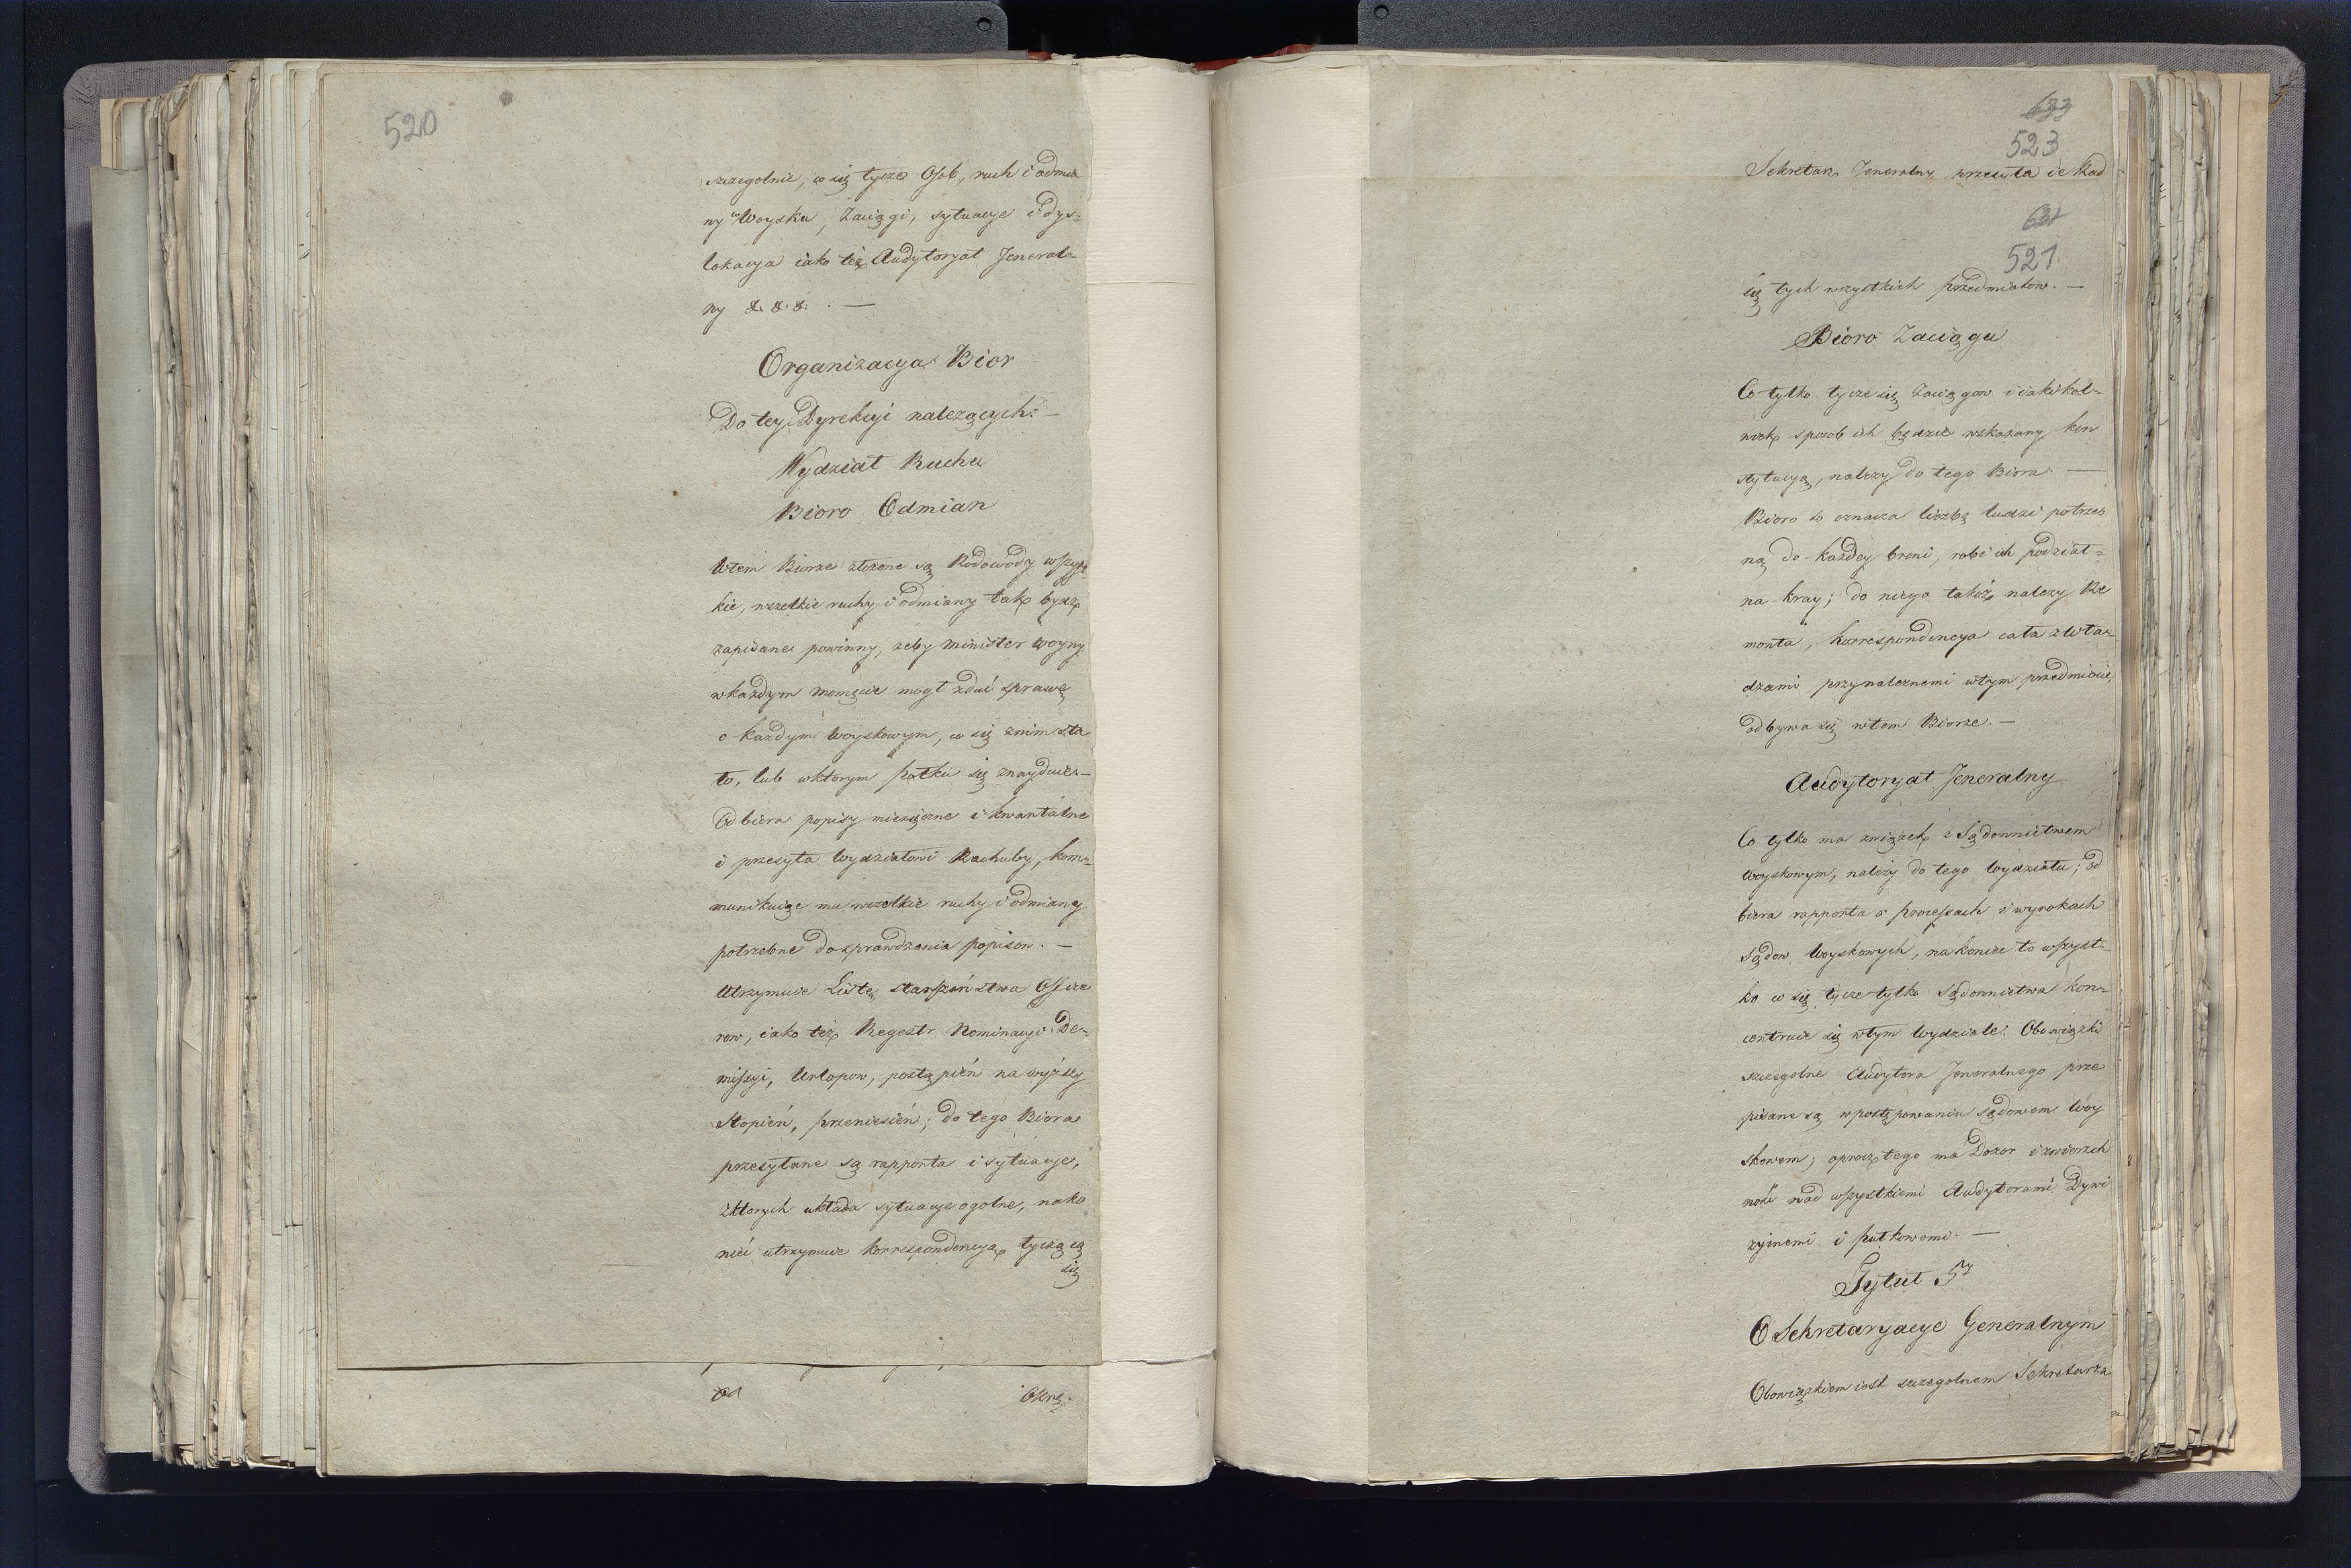 520
szczegolnie, co się tycze Osob, ruch i odmia
ny w Woysku, Zaciągi, sytuacye i dys=
lokacya iako też Audytoryat Jeneral=
ny &. &. &. . —
Organizacya Bior
Do tey Dyrekcyi należących: —
Wydział Ruchu
Bioro Odmian
W tem Biorze złożone są Rodowody wszyst
kie, wszelkie ruchy i odmiany tak bydz
zapisane powinny, żeby Minister Woyny
w każdym momęcie mogł zdać sprawę
o każdym Woyskowym, co się z nim sta
ło, lub w ktorym pułku się znayduie. —
Odbiera popisy miesięczne i kwartalne
i przesyła Wydziałowi Rachuby, kom=
munikuiąc mu wszelkie ruchy i odmiany
potrzebne do sprawdzenia popisow. —
Utrzymuie Listę starszeństwa Office
row, iako też Regestr Nominacyi De=
missyi, Urlopow, postąpień na wyższy
Stopień, przeniesień; do tego Biora
przesyłane są rapporta i sytuacye,
z ktorych układa sytuacye ogolne, nako
niec utrzymuie korrespondencyą tyczącą
się
od
Okrę.
633
523
Sekretarz Jeneralny przesyła ie Rad
631
521
się tych wszystkich przedmiotow. —
Bioro Zaciągu
Co tylko tycze się Zaciągow i iakikol=
wiek sposob ich będzie wskazany kon
stytucyą, należy do tego Biora. —
Bioro to oznacza liczbę ludzi potrzeb
ną do każdey broni, robi ich podział=
na kray; do niego takoż należy Re
monta, korrespondencya cała z Wła=
dzami przynależnemi w tym przedmiocie
odbywa się w tem Biorze. —
Audytoryat Jeneralny
Co tylko ma związek z Sądownictwem
Woyskowym, należy do tego Wydziału; od
biera rapporta o processach i wyrokach
Sądow Woyskowych, nakoniec to wszyst=
ko co się tycze tylko Sądownictwa kon=
centruie się w tym Wydziale. Obowiązki
szczegolne Audytora Jeneralnego prze
pisane są w postępowaniu Sądowem Woy
skowem; oprocz tego ma Dozor i zwierzch
ność nad wszystkiemi Audytorami Dywi
zyinemi i pułkowemi. —
Tytuł 5ty
O Sekretaryacye Generalnym
Obowiązkiem iest szczegolnem Sekretarza